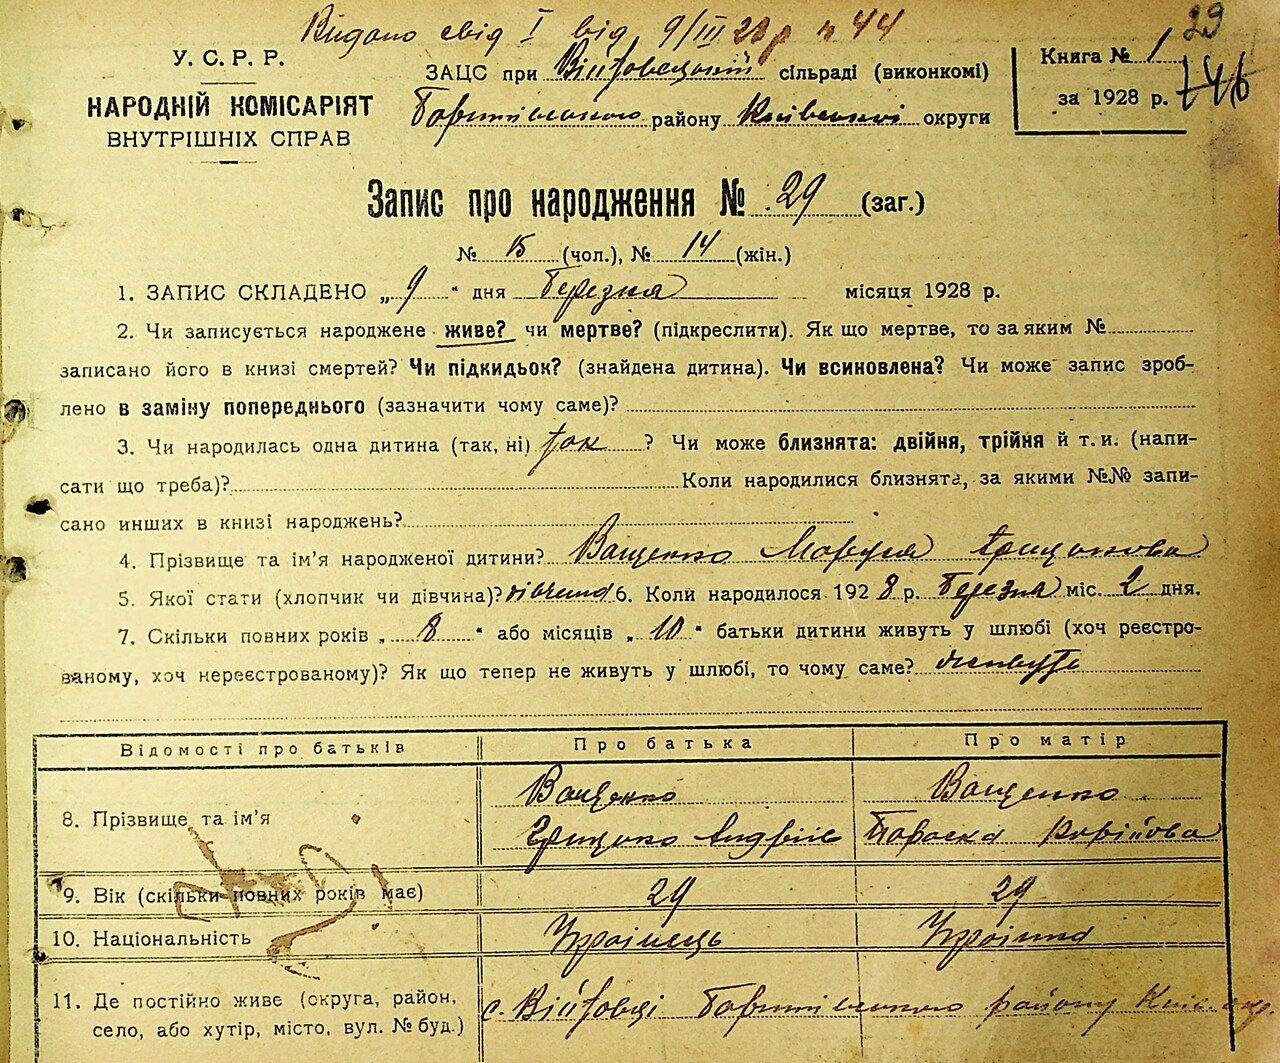 Видано свід І від 9/ІІІ 28 р № 44
29
У. С. Р. Р.
НАРОДНІЙ КОМІСАРІЯТ
ВНУТРІШНІХ СПРАВ
ЗАЦС при Війтовецькій сільраді (виконкомі)
району Київської округи
Книга № 1
за 1928 р.
Запис про народження № 29 (заг.)
№ 15 (чол.), № 14 (жін.)
1. ЗАПИС СКЛАДЕНО „ 9 “ дня Березня місяця 1928 р.
2. Чи записується народжене живе? чи мертве? (підкреслити). Як що мертве, то за яким №
записано його в книзі смертей? Чи підкидьок? (знайдена дитина). Чи всиновлена? Чи може запис зроб-
лено в заміну попереднього (зазначити чому саме)?
3. Чи народилась одна дитина (так, ні) так ? Чи може близнята: двійня, трійня й т. и. (напи-
сати що треба)? Коли народилися близнята, за якими №№ запи-
сано инших в книзі народжень?
4. Прізвище та ім’я народженої дитини? Ващенко Маруся Грицькова
5. Якої статі (хлопчик чи дівчина)? дівчина 6. Коли народилося 1928 р. Березня міс. 2 дня.
7. Скільки повних років „ 8 “ або місяців „ 10 “ батьки дитини живуть у шлюбі (хоч реєстро-
ваному, хоч нереєстрованому)? Як що тепер не живуть у шлюбі, то чому саме? живуть
Відомості про батьків Про батька Про матір
8. Прізвище та ім’я
Ващенко
Грицько Андріїв
Ващенко
Параска
9. Вік (скільки повних років має) 29 29
10. Національність Українець Українка
11. Де постійно живе (округа, район,
село, або хутір, місто, вул. № буд.)
с. Війтовці району Київ окр.